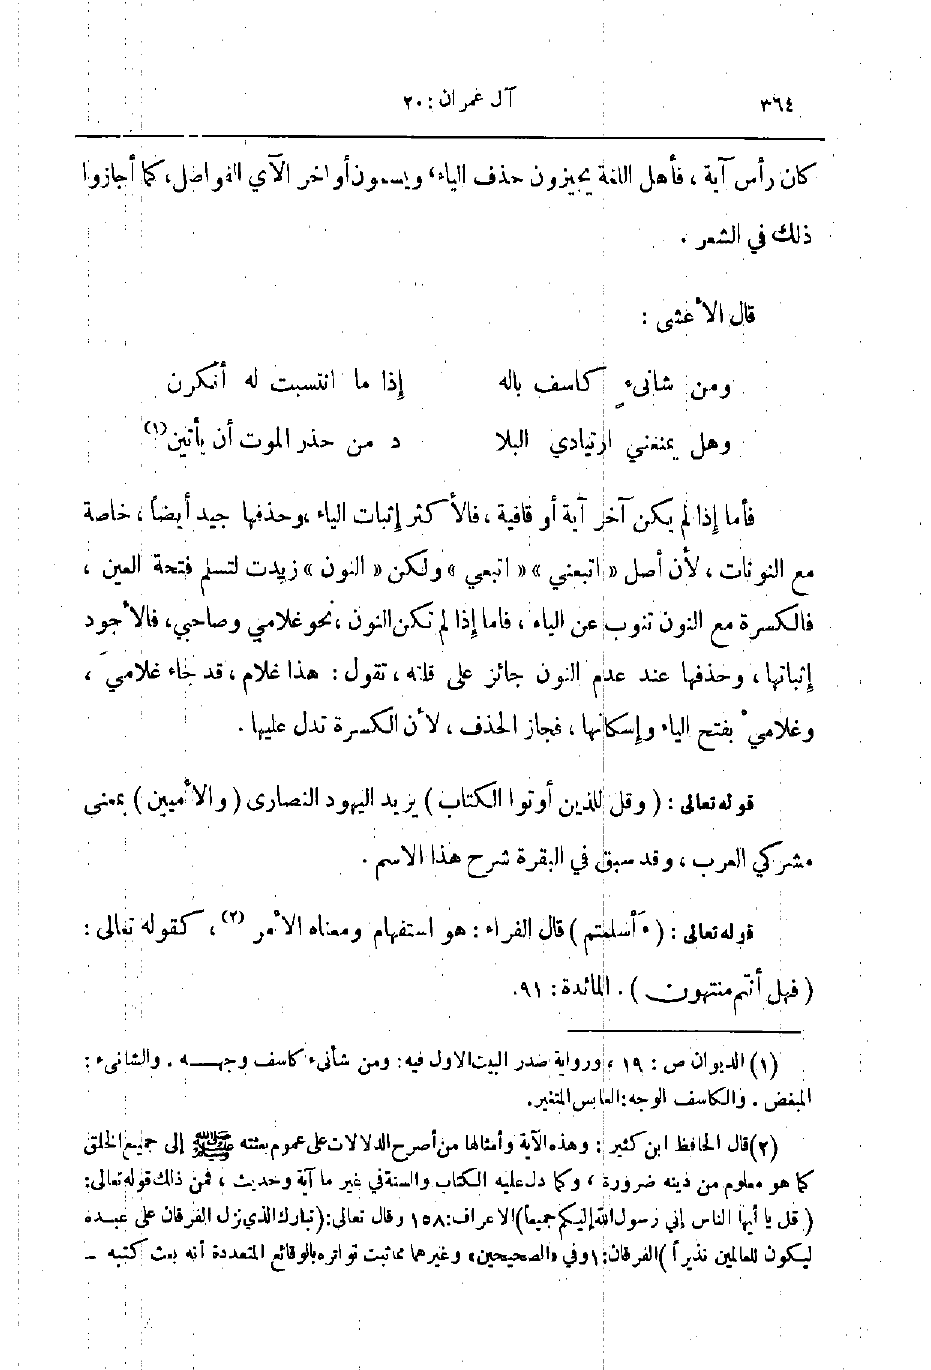 ٣٦٤ آل عمران : ٢٠
كان رأس آية ، فأهل اللغة يجيزون حذف الياء ، ويسمون أواخر الآي الفواصل ، كما أجازوا
ذلك في الشعر .
قال الأعشى :
ومن شانىءٍ كاسف باله إذا ما انتسبت له أنكرن
وهل يمنعني ارتيادي البلا د من حذر الموت أن يأتين (١)
فأما إذا لم يكن آخر آية أو قافية ، فالأكثر إثبات الياء ، وحذفها جيد أيضاً ، خاصة
مع النونات ، لأن أصل « اتبعني » « اتبعي » ولكن « النون » زيدت لتسلم فتحة العين ،
فالكسرة مع النون تنوب عن الياء ، فاما إذا لم تكن النون ، نحو غلامي وصاحبي ، فالأجود
إثباتها ، وحذفها عند عدم النون جائز على قلته ، تقول : هذا غلام ، قد جاء غلاميَ ،
وغلاميْ بفتح الياء وإسكانها ، فجاز الحذف ، لأن الكسرة تدل عليها .
قوله تعالى : ( وقل للذين أوتوا الكتاب ) يريد اليهود النصارى ( والأميين ) بمعنى
مشركي العرب ، وقد سبق في البقرة شرح هذا الاسم .
قوله تعالى : ( ءَأسلمتم ) قال الفراء : هو استفهام ومعناه الأمر (٢) ، كقوله تعالى :
( فهل أنتم منتهون ) . المائدة : ٩١.
(١) الديوان ص : ١٩ ، ورواية صدر البيت الاول فيه : ومن شأنىء كاسف وجهــــه . والشانىء :
المبغض . والكاسف الوجه : العابس المتغير .
(٢) قال الحافظ ابن كثير : وهذه الآية وأمثالها من أصرح الدلالات على عموم بعثته ﷺ إلى جميع الخلق
كما هو معلوم من دينه ضرورة ، وكما دل عليه الكتاب والسنة في غير ما آية وحديث ، فمن ذلك قوله تعالى :
( قل يا أيها الناس إني رسول الله إليكم جميعاً ) الاعراف : ١٥٨ وقال تعالى : ( تبارك الذي نزل الفرقان على عبده
ليكون للعالمين نذيراً ) الفرقان : ١ وفي «الصحيحين» وغيرهما مما ثبت تواتره بالوقائع المتعددة أنه بعث كتبه –